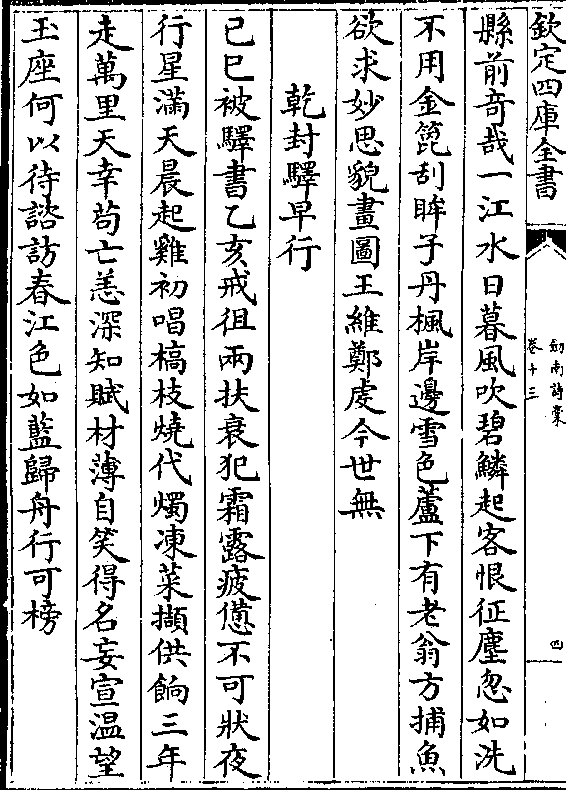 欽定四庫全書
劒南詩槀
卷十三
四
縣前奇哉一江水日暮風吹碧鱗起客恨征塵忽如洗
不用金篦刮眸子丹楓岸邊雪色蘆下有老翁方捕魚
欲求妙思貌畫圖王維鄭虔今世無
乾封驛早行
已巳被驛書乙亥戒徂兩扶衰犯霜露疲憊不可狀夜
行星滿天晨起雞初唱槁枝燒代燭凍菜擷供餉三年
走萬里天幸茍亡恙深知賦材薄自笑得名妄宣温望
玉座何以待諮訪春江色如藍歸舟行可榜